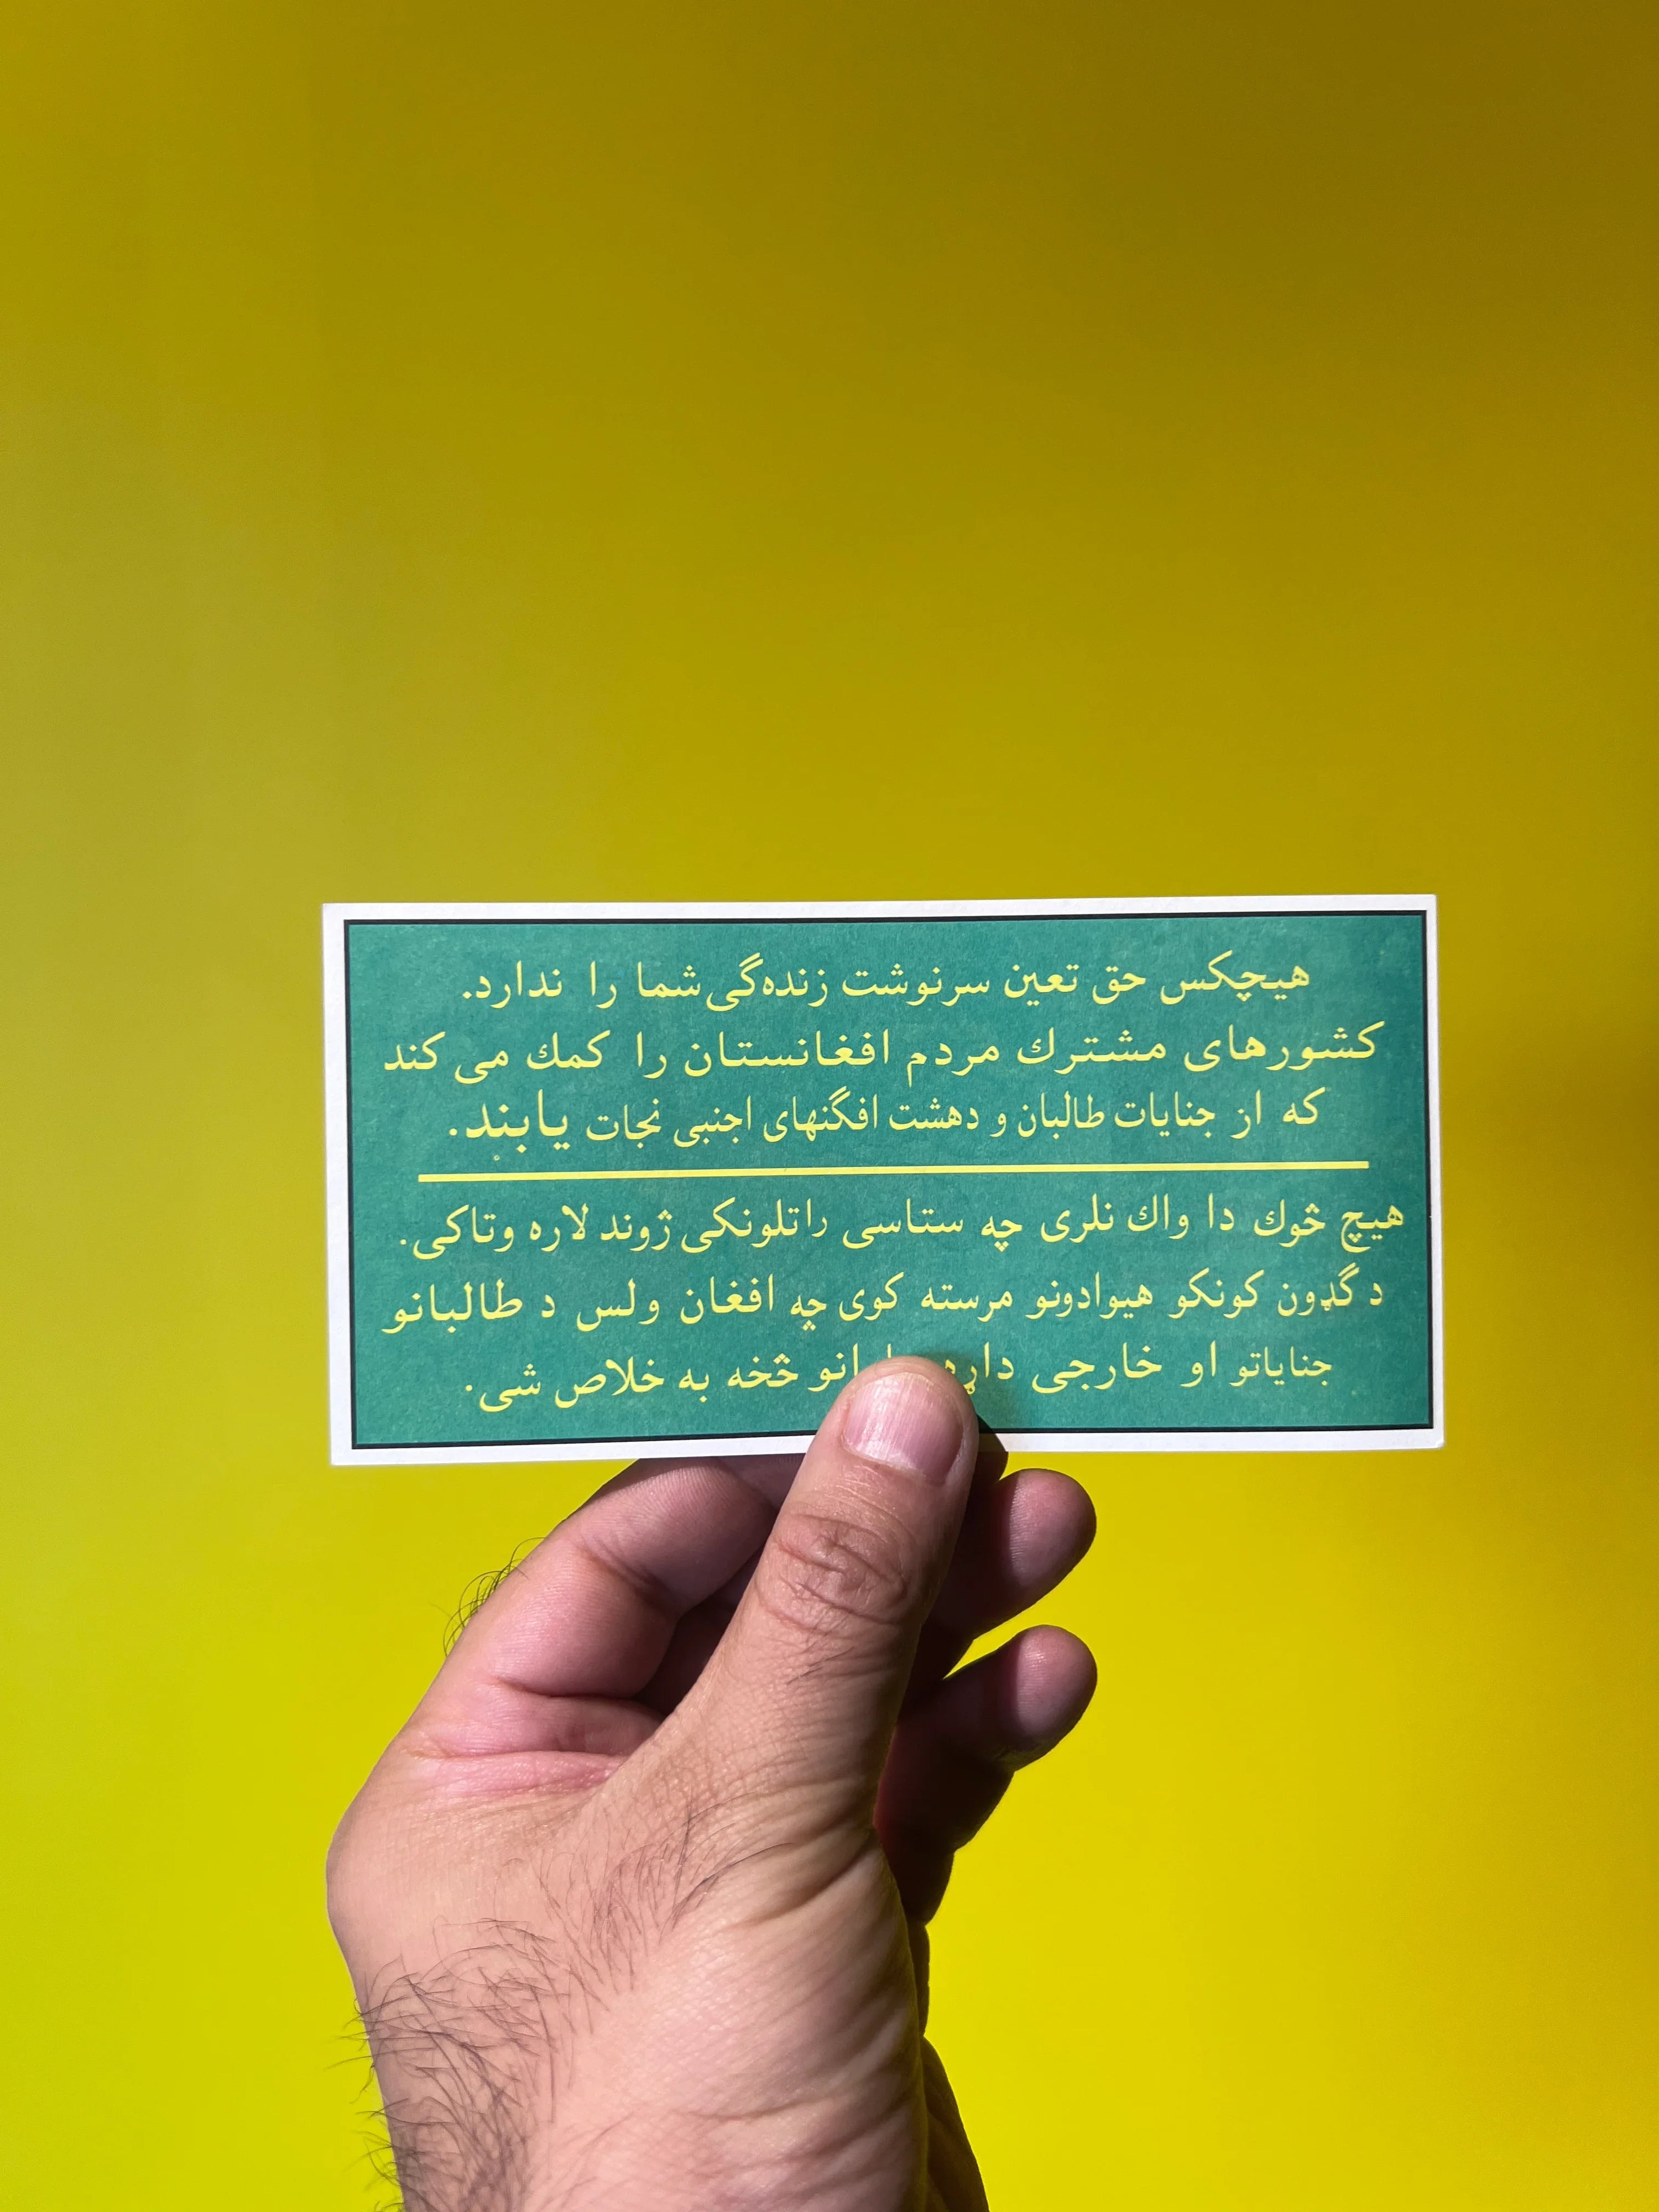 هیچکس حق تعین سرنوشت زنده‌گی شما را ندارد.
کشورهای مشترك مردم افغانستان را کمك می کند
که از جنایات طالبان و دهشت افگنهای اجنبی نجات یابند.
هیچ څوك دا واك نلری چه ستاسی راتلونکی ژوند لاره وتاکی.
د گډون کونکو هیوادونو مرسته کوی چه افغان ولس د طالبانو
جنایاتو او خارجی څخه به خلاص شی.